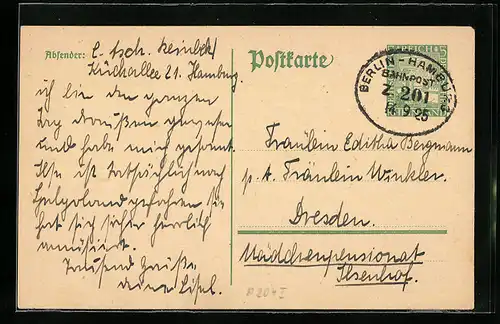 Absender: E. tsch. Reinbek
Küchallee 21. Hamburg.
ich bin den ganzen
Tag draußen gewesen
und habe mich gesonnt.
Ilse ist tatsächlich nach
Helgoland gefahren sie
hat sich sicher herrlich
amüsiert.
Tausend Grüße
deine Lisel.
Postkarte
DEUTSCHES REICH
BERLIN - HAMBURG
BAHNPOST
Z 201
14.9.25
Fräulein Editha Bergmann
p. A. Fräulein Winkler.
Dresden.
Mädchenpensionat
Ilsenhof.
P204I